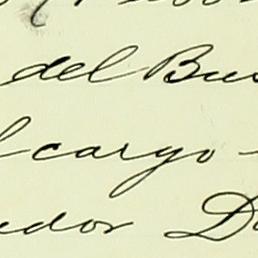 del Bus
l cargo -
ador D